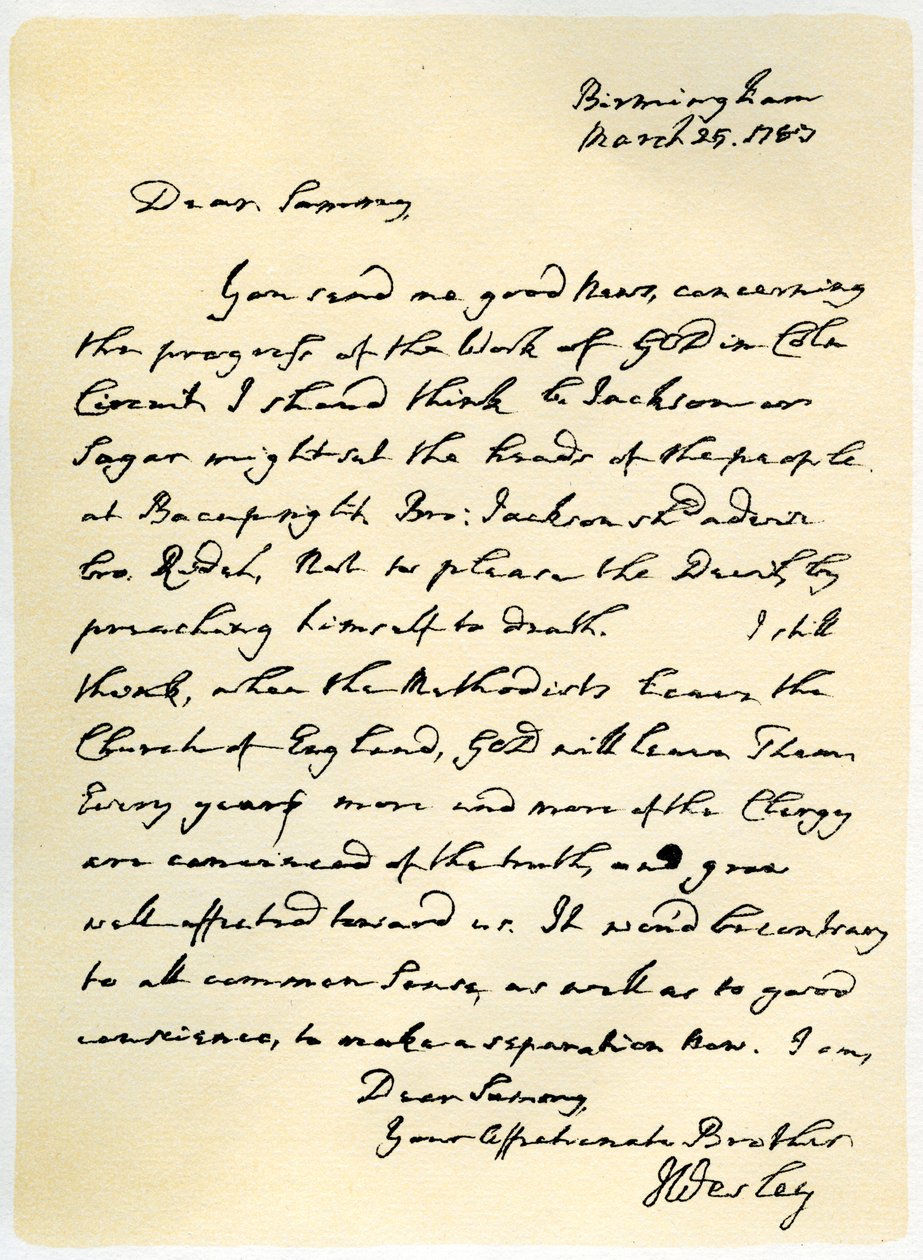 Birmingham
March 25. 1787
Dear Sammy,
You send me good News, concerning
the progress of the Work of GOD in Coln
Circuit. I shoud think br Jackson or
Sagar might set the heads of the people
at Bacup right. Bro: Jackson shd advise
bro. Ridel, Not to please the Devil, by
preaching himself to death. I still
think, when the Methodists leave the
Church of England, GOD will leave Them.
Every year more and more of the Clergy
are convinced of the truth, and grow
well-affected toward us. It woud be contrary
to all common Sense, as well as to good
conscience, to make a separation Now. I am,
Dear Sammy,
Your Affectionate Brother
JWesley